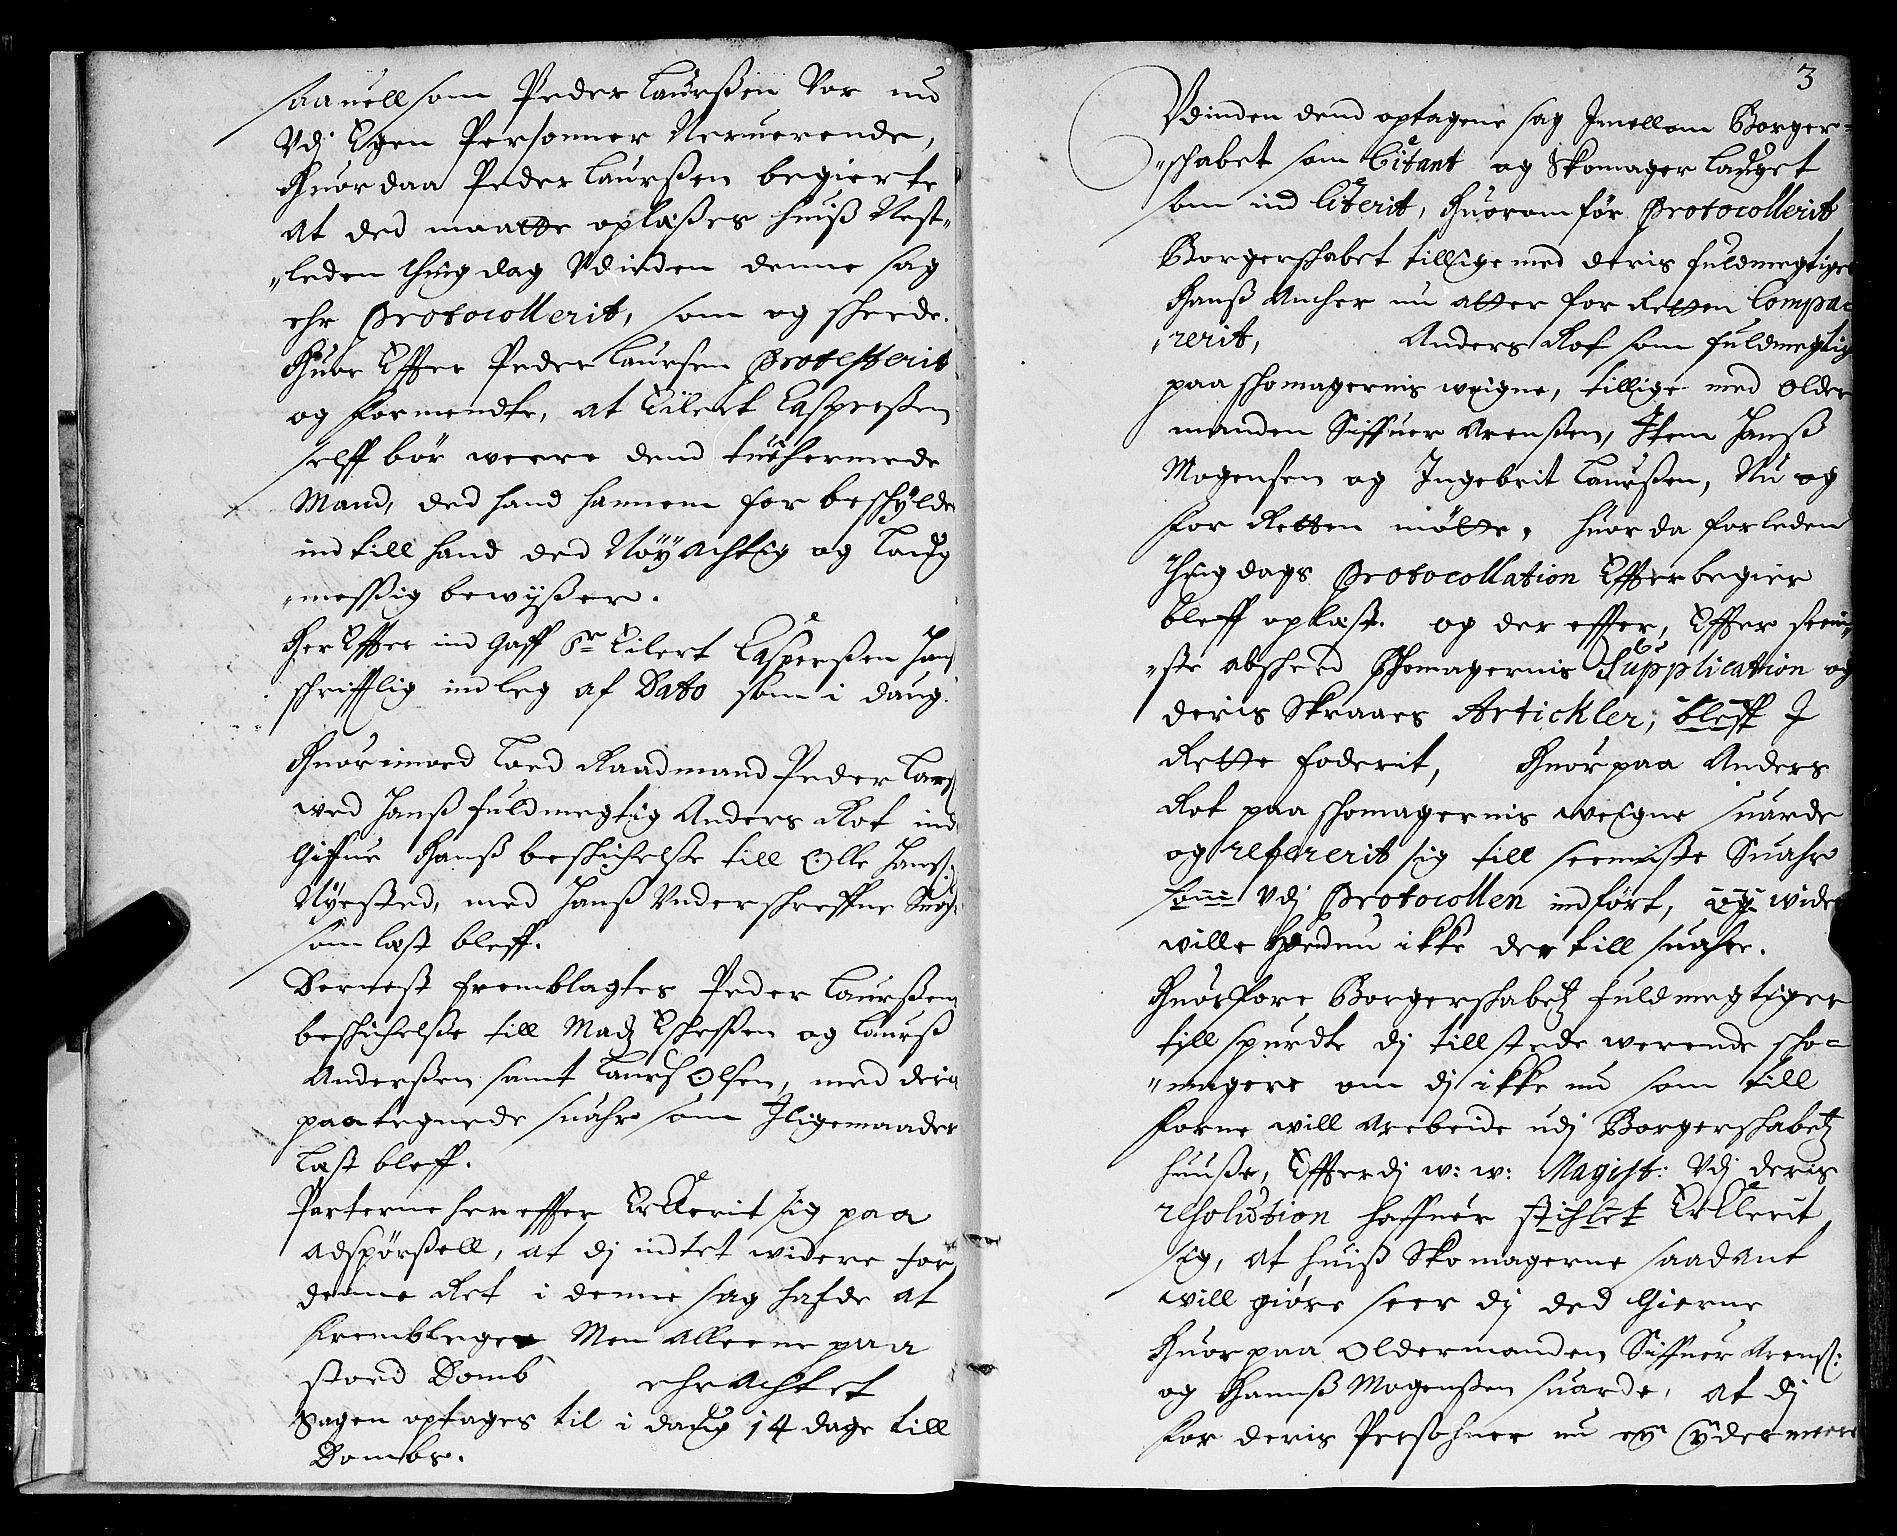 saauell som Peder Laurssen Vor nu
Vdj Egen Personner Neruerende,
Huor daa Peder Laurssen begierte
at ded maatte oplæsses huis Nest¬
„leden thingdag Vdinden denne sag
ehr Protocollerit, som og skeede.
Huor Effter Peder Laursen Protesterit
og formendte, at Eilert Caspersen
selff bör weere dend
Mand, ded hand hannem for beskylder
indtill hand ded Nöyachtig og Laug
„messig bewysser.
Her Effter ind Gaff Sr Eilert Casperssen Hans
skrifftlig indleg af Dato som i daug.
Huorimoed Loed Raadmand Peder Lars
wed Hanss fuldmegtig Anders Rof ind
Giffue Hanss beskichelsse till Olle Hanss:
Nyested, med Hanss Vnderskreffne Suar
som læst bleff.
Dernest fremblagtes Peder Laurssens
beskichelsse till Madz Eskessen og Laurss
Anderssen samt Laurs Olsen, med deris
paategnede suahr som Iligemaader
Læst bleff.
Parterne her effter Erklerit sig paa
adspörssell, at dj indtet widere for
denne Ret i denne sag hafde at
frembleger Men alleene paa
stoed Domb ehrachtet
Sagen optages til i daug 14 dage till
Dombs.
3
Vdinden dend optagene sag Imellom Borger¬
„skabet som Citant og Skomager lauget
som ind Citerit, Huorom för Protocollerit
Borgerskabet tillige med deris fuldmegtiger
Hanss Ancher nu atter for Retten Compa¬
„rerit, Anders Rof som fuldmegtig
paa skomagernis weigne, tillige med Older
manden Siffuer Arenssen, Item Hanss
Mogensen og Ingebrit Laurssen, Nu og
for Retten mötte, huor da forleden
thingdags Protocollation Effter begier
bleff oplæst. og der effter, Effter seeni¬
„ste afskeed Skomagernis Supplication og
deris Skraaes Artickler, bleff I
Rette foderit, Huorpaa Anders
Rof paa skomagernis weigne suarde
og refererit sig till seeniste Suahr
som Vdj Protocollen indfört, og wider
wille hand nu ikke der till suahre.
Huorfore Borgerskabetz fuldmegtiger
till spurdte dj tillstede werende sko¬
„magere om dj ikke nu som till
forne will Arbeide udj Borgerskabetz
huusse, Effterdj w: w: Magist: Vdj deris
resolution haffuer Erklerit
sig, at huiss Skomagerne saadant
will giöre seer dj ded Gierne
Huorpaa Oldermanden Siffuer Arenss:
og Hanss Mogenssen suarde, at dj
for deris Persohner nu ey ydermeere